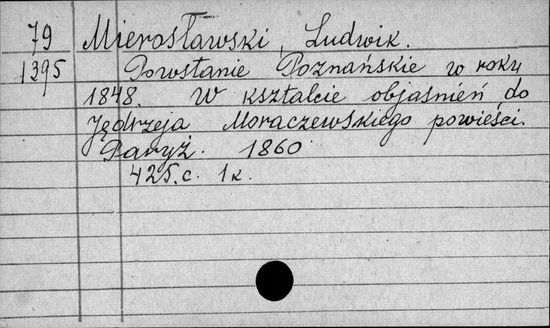 79 Mierosławski, Ludwik.
1395 Powstanie Poznańskie w roku
1848. W kształcie objaśnień do
Jędrzeja Moraczewskiego powieści.
Paryż. 1860
425.c. 1k.